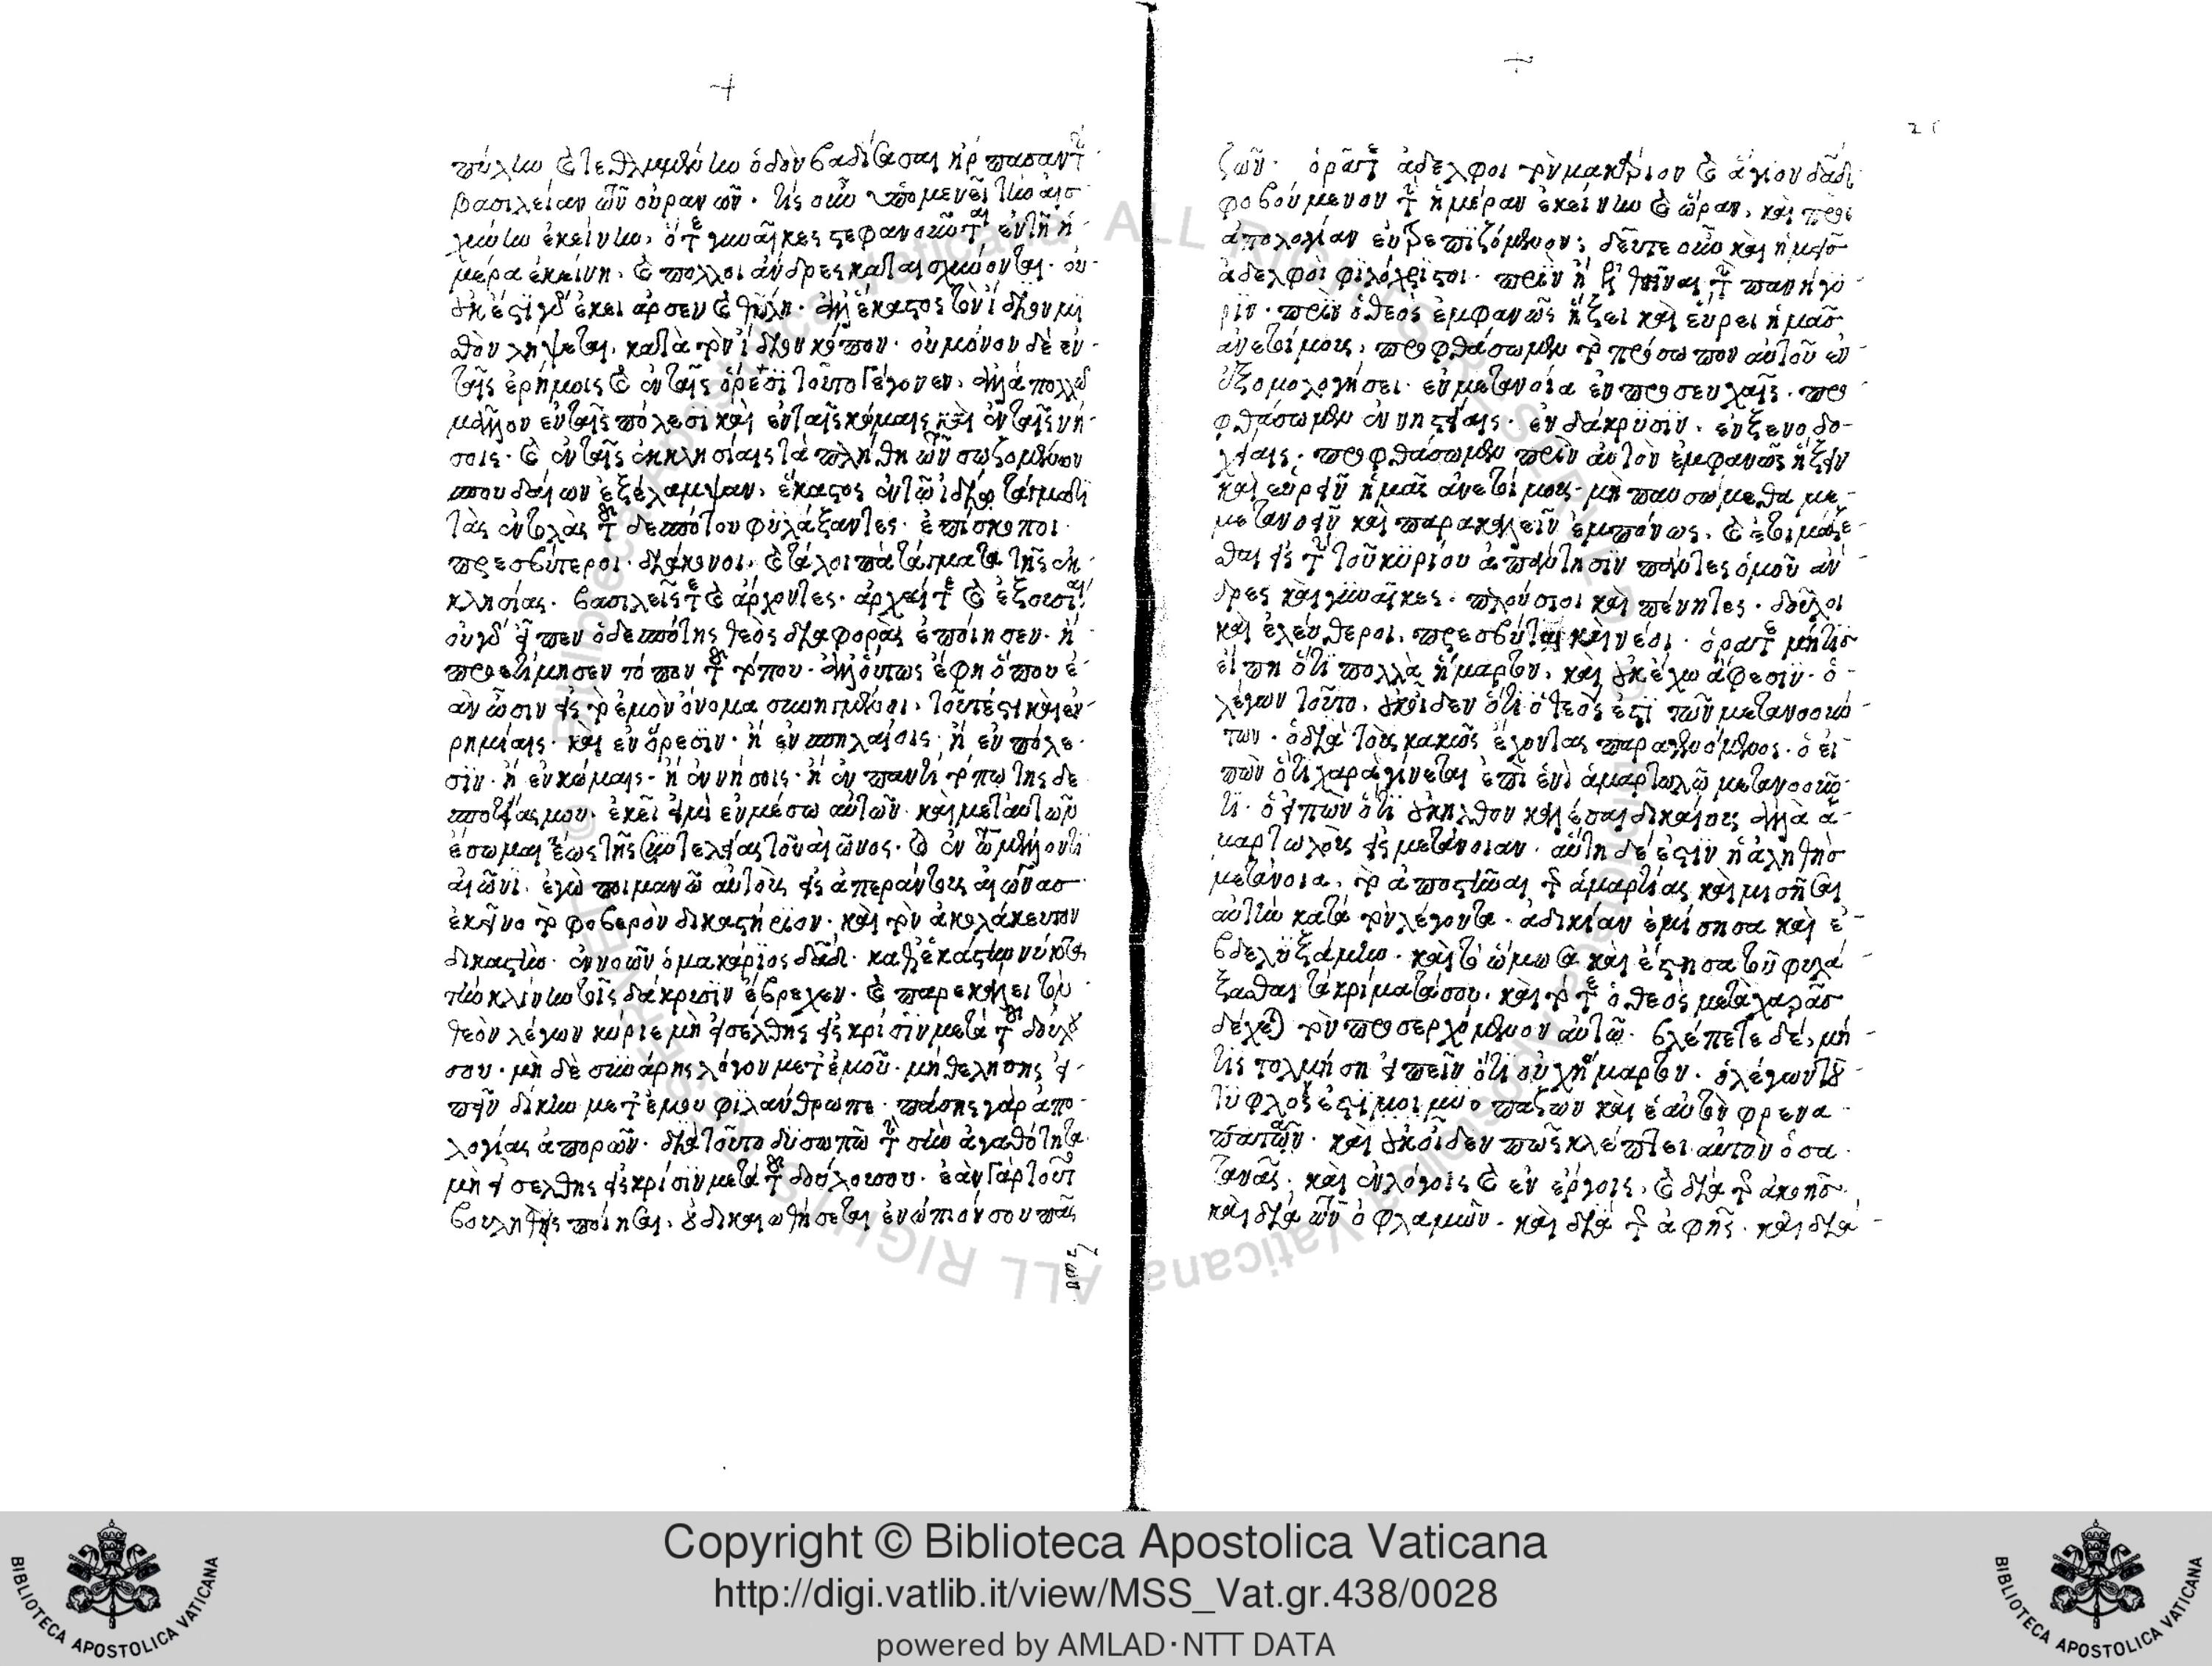 πύλην καὶ τεθλιμμένην ὁδὸν βαδίσασαι πρὸς πᾶσαν τὴν
βασιλείαν τῶν οὐρανῶν. τίς οὖν ὑπομενεῖ τὴν αἰσ
χύνην ἐκείνην, ὅτε γυναῖκες στεφανοῦνται ἐν τῇ ἡ
μέρα ἐκείνη. καὶ πολλοὶ ἄνδρες καταισχύνονται. οὐ
κ ἔστι γὰρ ἐκεῖ ἄρσεν καὶ θῆλη. ἀλλ' ἕκαστος τὸν ἴδιον μι
σθὸν λήψεται, κατὰ τὸν ἴδιον κόπον. οὐ μόνον δὲ ἐν
ταῖς ἐρήμοις καὶ ἐν ταῖς ὄρεσι τοῦτο γέγονεν, ἀλλὰ πολλῶ
μᾶλλον ἐν ταῖς πόλεσι καὶ ἐν ταῖς κώμαις καὶ ἐν ταῖς νή
σοις. καὶ ἐν ταῖς ἐκκλησίαις τὰ πλήθη τῶν σωζομένων
σπουδαίων ἐξέλαμψαν, ἕκαστος ἐν τῷ ἰδίῳ τάγματι
τὰς ἐντολὰς τοῦ δεσπότου φυλάξαντες. ἐπίσκοποι.
πρεσβύτεροι. διάκονοι. καὶ τὰ λοιπὰ τάγματα τῆς ἐκ
κλησίας. βασιλεῖς τε καὶ ἄρχοντες. ἀρχαί τε καὶ ἐξουσίαι.
οὐ γὰρ εἶπεν ὁ δεσπότης θεὸς διαφορὰς ἐποίησεν. ἢ
προετίμησεν τόπον τοῦ τόπου. ἀλλ' οὕτως ἔφη ὅπου ἐ
ὰν ὦσιν εἰς τὸ ἐμὸν ὄνομα συνηγμένοι, τοῦτέστι κἂν ἐν
ρημίαις. καὶ ἐν ὄρεσιν. ἢ ἐν σπηλαίοις. ἢ ἐν πόλε
σιν. ἢ ἐν κώμαις. ἢ ἐν νήσοις. ἢ ἐν παντὶ τόπω τῆς δε
σποτείας μου. ἐκεῖ εἰμὶ ἐν μέσω αὐτῶν. καὶ μετ' αὐτῶν
ἔσωμαι ἕως τῆς συντελείας τοῦ αἰῶνος. καὶ ἐν τῶ μέλλοντι
αἰῶνι. ἐγὼ ποιμανῶ αὐτοὺς εἰς ἀπεράντους αἰῶνας
ἐκεῖνο τὸ φοβερὸν δικαστήριον. καὶ τὸν ἀκολάκευτον
δικαστὴν. ἐννοῶν ὁ μακάριος δαδ. καθ' ἑκάστην νύκτα
τὴν κλίνην τοῖς δάκρυσιν ἔβρεχεν. καὶ παρεκάλει τὸν
θεὸν λέγων κύριε μὴ εἰσέλθης εἰς κρίσιν μετὰ τοῦ δούλου
σου. μὴ δὲ συνάρης λόγον μετ' ἐμοῦ. μὴ θελήσης εἰ
πεῖν δίκην μετ' ἐμου φιλάνθρωπε. πάσης γὰρ ἀπο
λογίας ἀπορῶν. διὰ τοῦτο δυσωπῶ τὴν σὴν ἀγαθότητα
μὴ εἰσέλθης εἰς κρίσιν μετὰ τοῦ δούλου σου. ἐὰν γὰρ τοῦτο
βουληθῆς ποιῆσαι. οὐ δικαιωθήσεται ἐνώπιόν σου πᾶς
ζῶν
ζῶν. ὁρᾶτε ἀδελφοι τὸν μακάριον καὶ ἅγιον δαδ
φοβούμενον τὴν ἡμέραν ἐκείνην καὶ ὥραν, καὶ πρὸς
ἀπολογίαν εὐτρεπιζόμενον; δεῦτε οὖν καὶ ἡμεῖς
ἀδελφοὶ φιλόχριστοι. πρὶν ἢ λυθῆναι τὴν πανήγυ
ριν. πρὶν ὁ θεὸς ἐμφανῶς ἥξει καὶ εὕρει ἡμᾶς
ἀνετοίμους, προφθάσωμεν τὸ πρόσωπον αὐτοῦ ἐν
ἐξομολογήσει. ἐν μετανοία ἐν προσευχαῖς. προ
φθάσωμεν ἐν νηστείαις. ἐν δάκρυσιν. ἐν ξενοδο
χείαις. προφθάσωμεν πρὶν αὐτὸν ἐμφανῶς ἥξειν
καὶ εὑρεῖν ἡμᾶς ἀνετοίμους. μὴ παυσώμεθα με
μετανοεῖν καὶ παρακαλεῖν ἐμπόνως, καὶ ἑτοιμάζε
σθαι εἰς τὴν τοῦ κυρίου ἀπάντησιν πάντες ὁμοῦ ἄν
δρες καὶ γυναῖκες. πλούσιοι καὶ πένητες. δοῦλοι
καὶ ἐλεύθεροι. πρεσβύται καὶ νέοι. ὁρᾶτε μήτις
εἴπη ὅτι πολλὰ ἥμαρτον, καὶ οὐκ ἔχω ἄφεσιν. ὁ
λέγων τοῦτο, οὐκ οἶδεν ὅτι ὁ θεός ἐστι τῶν μετανοούν
των. ὁ διὰ τοὺς κακῶς ἔχοντας παραγενόμενος. ὁ εἰ
πὼν ὅτι χαρὰ γίνεται ἐπὶ ἑνὶ ἁμαρτωλῷ μετανοοῦν
τι. ὁ εἰπὼν ὅτι οὐκ ἦλθον καλέσαι δικαίους ἀλλὰ ἁ
μαρτωλοὺς εἰς μετάνοιαν. αὕτη δέ ἐστιν ἡ ἀληθὴς
μετάνοια, τὸ ἀποστῆναι τῆς ἁμαρτίας καὶ μισῆσαι
αὐτὴν κατὰ τὸν λέγοντα. ἀδικίαν ἐμίσησα καὶ ἐ
βδελυξάμην. καὶ τὸ ὤμοσα καὶ ἔστησα τοῦ φυλά
ξασθαι τὰ κρίματά σου, καὶ τότε ὁ θεὸς μετὰ χαρᾶς
δέχεται τὸν προσερχόμενον αὐτῷ. βλέπετε δέ, μή
τις τολμήση εἰπεῖν ὅτι οὐχ' ἥμαρτον. ὁ λέγων τοῦτο
τυφλός ἐστι μοι μυοπάζων καὶ ἑαυτὸν φρενα
πατῶν. καὶ οὐκ οἶδεν πῶς κλέπτει αὐτὸν ὁ σα
τανᾶς. καὶ ἐν λόγοις καὶ ἐν ἔργοις, καὶ διὰ τῆς ἀκοῆς.
καὶ διὰ τῶν ὀφθαλμῶν. καὶ διὰ τῆς ἁφῆς. καὶ διὰ
Copyright © Biblioteca Apostolica Vaticana
http://digi.vatlib.it/view/MSS_Vat.gr.438/0028
powered by AMLAD·NTT DATA
BIBLIOTECA APOSTOLICA VATICANA
BIBLIOTECA APOSTOLICA VATICANA